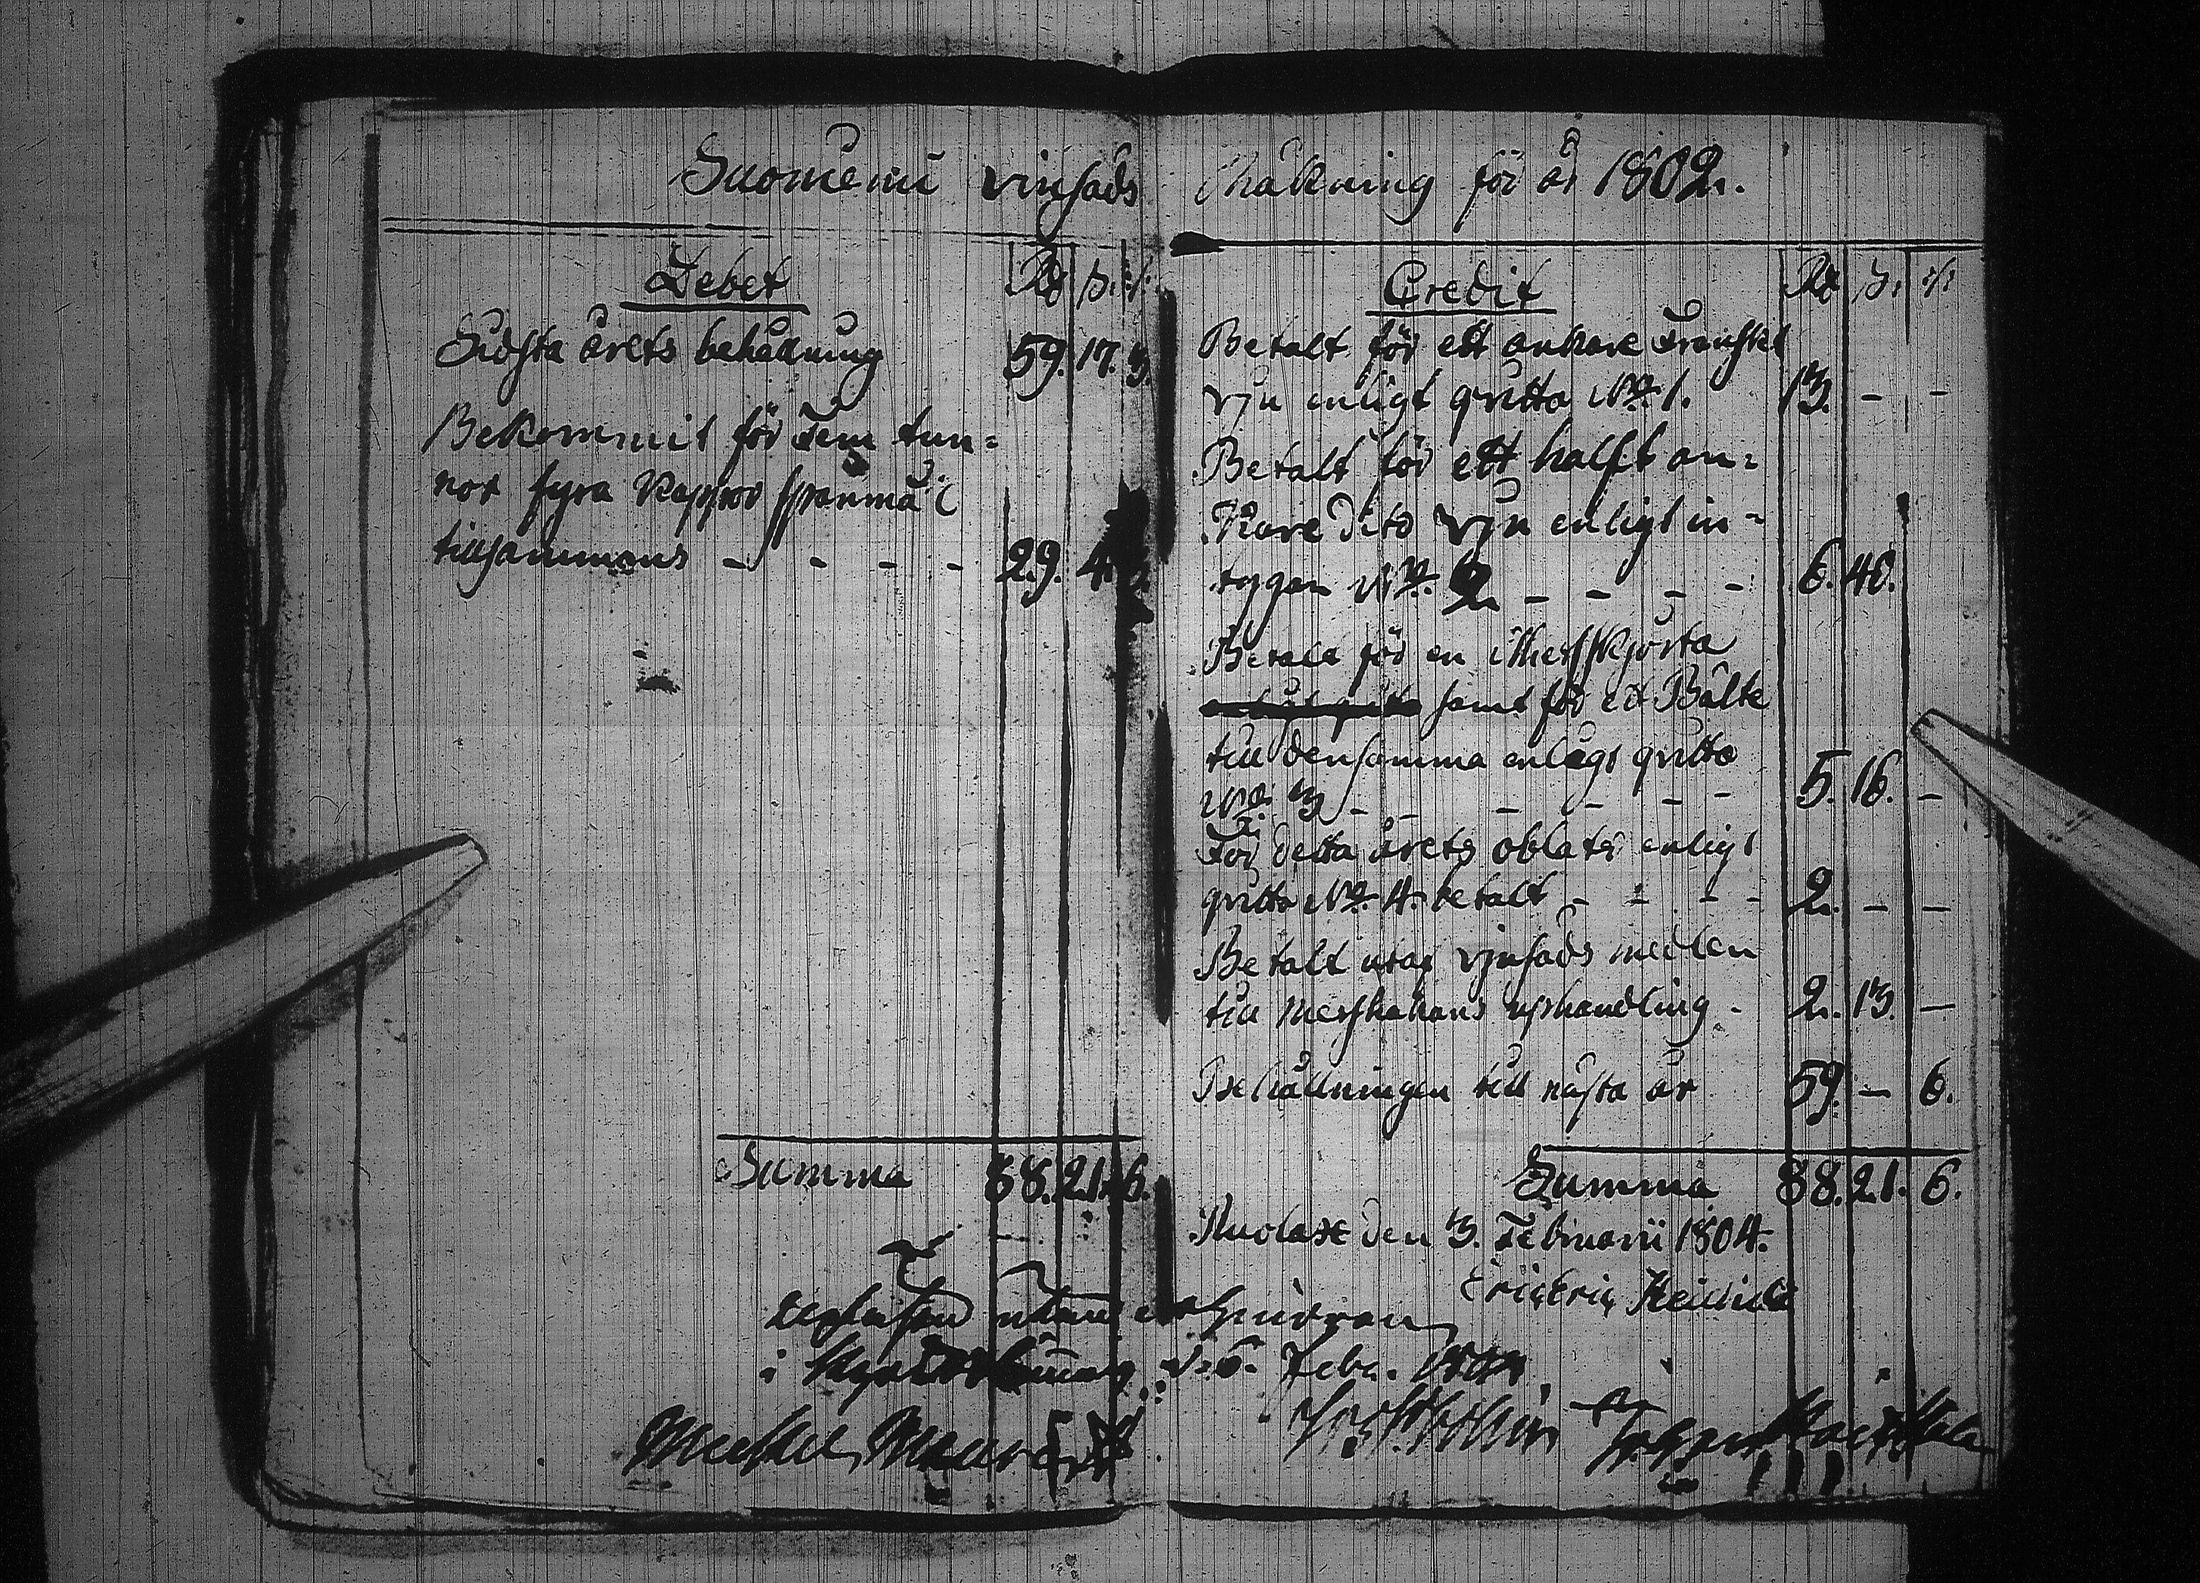 Suomenni vinsäds Räkning för år 1802.
Debet Rd s. rst.
Sidsta årets behållning 59. 17. 3.
Bekommit för Fem tun=
nor fyra Kappor spanmål
tillsammans - - - - 29. 4. 3
Summa 88. 21. 6.
Credit Rd s. rst.
Betalt för ett ankare Franskt
vjn enligt qvitto No. 1. 13. - -
Betalt för ett halft an=
kare dito vjn enligt in=
tygan No. 2 - - - - 6. 40.
Betalt för en Messskjorta
enligt qvitto samt för et Bälte
till densamma enligt qvitto
No. 3 - - - - - - 5. 16. -
För detta årets oblater enligt
qvitto No. 4. betalt - - - - 2. - -
Betalt utaf vjnsäds medlen
till Messhakans uphandling - 2. 13. -
Behållningen till nästa år 59. - 6.
Summa 88. 21. 6.
Kuolax den 3. Februarii 1804.
Eric Eric
utan
i d. 6. Febr.
Johan